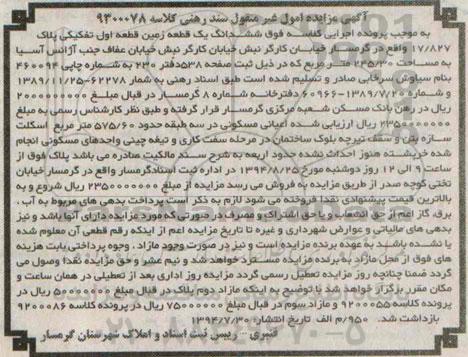 آگهی مزایده اموال غیر منقول سند رهنی کلاسه ۹۳۰۰۰۷۸
به موجب پرونده اجرایی کلاسه فوق ششدانگ یک قطعه زمین قطعه اول تفکیکی پلاک
۱۷/۸۲۷ واقع در گرمسار خیابان کارگر نبش خیابان کارگر نبش خیابان عفاف جنب آژانس آسیا
به مساحت ۲۴۵/۳۰ متر مربع که در ذیل ثبت صفحه ۵۳۸ دفتر ۲۳۰ به شماره چاپی ۴۶۰۰۹۴
بنام سیاوش سرخابی صادر و تسلیم شده است طبق اسناد رهنی به شمار ۶۲۲۷۸-۱۳۸۹/۱۱/۲۵
و شماره ۱۳۸۹/۷/۲۰-۶۰۹۶۶ دفترخانه شماره ۸ گرمسار در قبال مبلغ
ریال در رهن بانک مسکن شعبه مرکزی گرمسار قرار گرفته و طبق نظر کارشناس رسمی به مبلغ
۲۳۵۰۰۰۰۰۰۰ ریال ارزیابی شده اعیانی مسکونی در سه طبقه حدود ۵۷۵/۶۰ متر مربع اسکلت
سازه بتن و سقف تیرچه بلوک ساختمان در مرحله سفت کاری و تیغه چینی واحدهای مسکونی انجام
شده خرپشته هنوز احداث نشده حدود اربعه به شرح سند مالکیت صادره می باشد پلاک فوق از
ساعت ۹ الی ۱۲ روز دوشنبه مورخ ۱۳۹۴/۸/۲۵ در اداره ثبت اسناد گرمسار واقع در گرمسار خیابان
تختی کوچه صدر از طریق مزایده به فروش می رسد مزایده از مبلغ ۲۳۵۰۰۰۰۰۰۰ ریال شروع و به
بالاترین قیمت پیشنهادی نقدا فروخته می شود لازم به ذکر است پرداخت بدهی های مربوط به آب ،
برق، گاز اعم از حق انشعاب و یا حق اشتراک و مصرف در صورتی که مورد مزایده دارای آنها باشد و نیز
بدهی های مالیاتی و عوارض شهرداری و غیره تا تاریخ مزایده اعم از اینکه رقم قطعی آن معلوم شده
یا نشده باشد به عهده برنده مزایده است و نیز در صورت وجود مازاد، وجوه پرداختی بابت هزینه
های فوق از محل مازاد به برنده مزایده مسترد خواهد شد و نیم عشر و حق مزایده نقدا وصول می
گردد ضمنا چنانچه روز مزایده تعطیل رسمی گردد مزایده روز اداری بعد از تعطیلی در همان ساعت و
مکان مقرر برگزار خواهد شد با توضیح به اینکه مازاد دوم پلاک در قبال مبلغ ریال در
پرونده کلاسه ۹۲۰۰۰۵۵ و مازاد سوم در قبال مبلغ ریال در پرونده کلاسه ۹۲۰۰۰۸۶
بازداشت شد. ۹۵۰/م الف تاریخ انتشار: ۱۳۹۴/۷/۳۰
قنبری - رییس ثبت اسناد و املاک شهرستان گرمسار